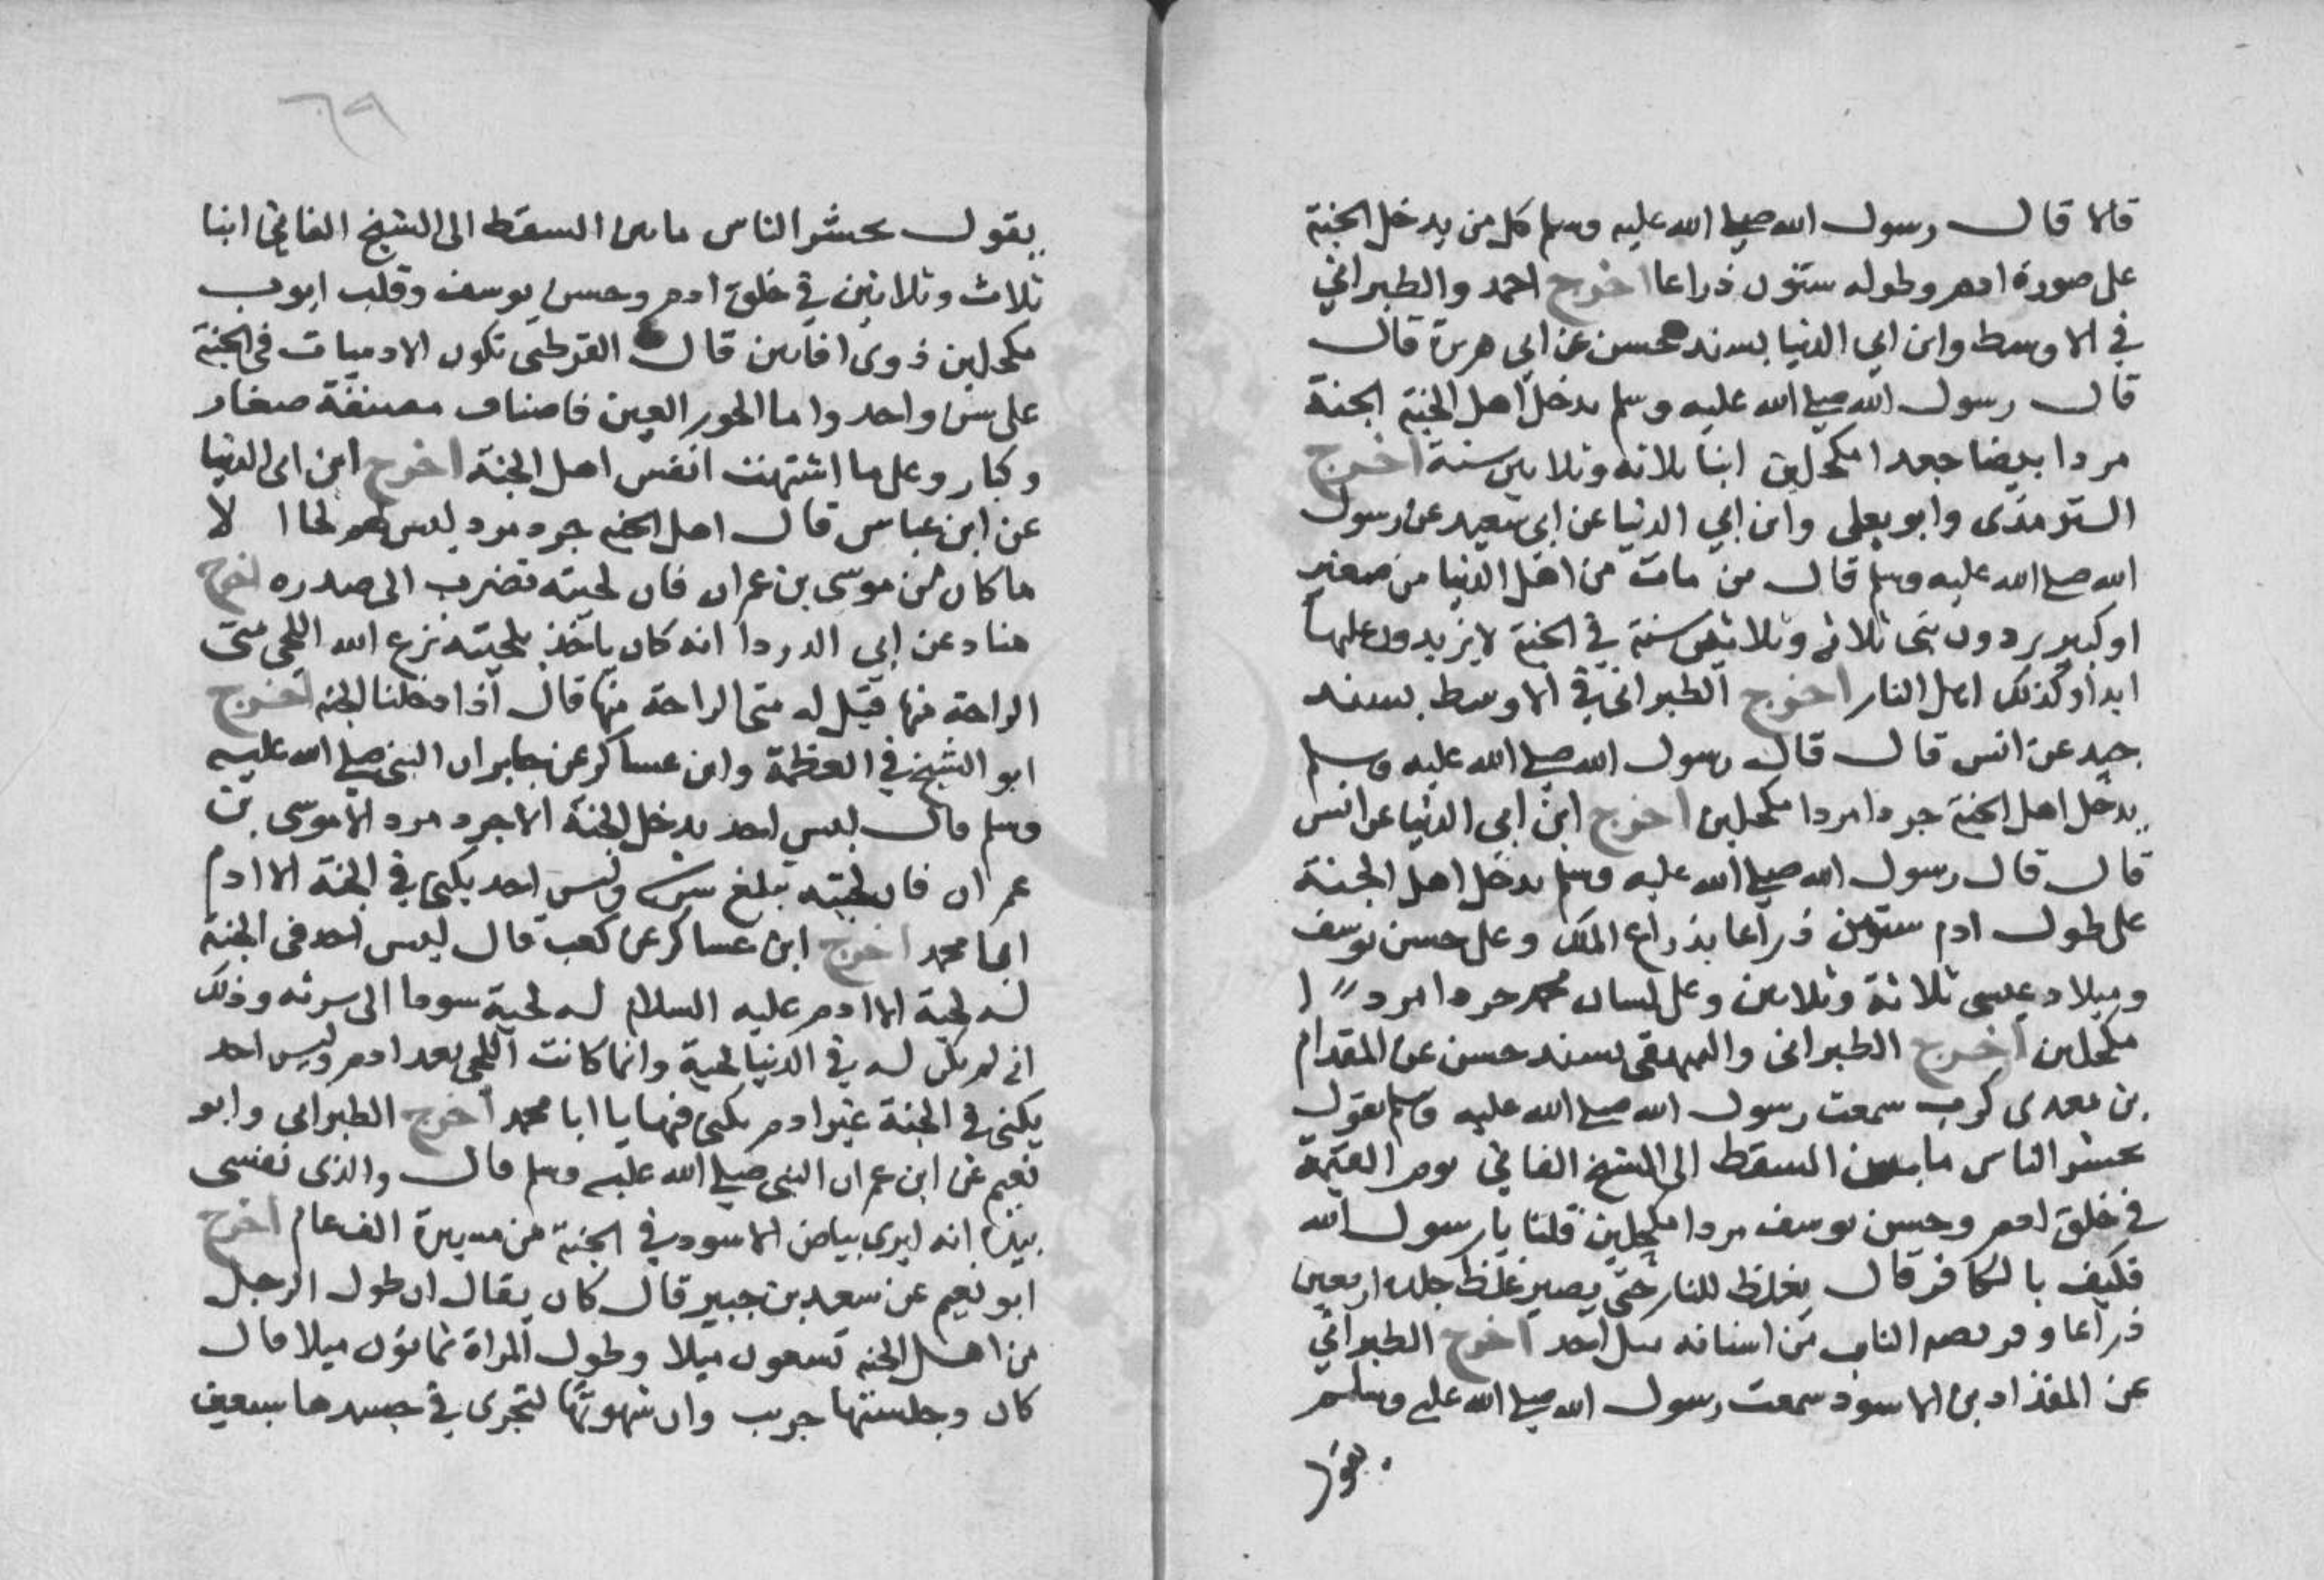 قالا قال رسول الله صلى الله عليه وسلم كل من يدخل الجنة
على صورة ادم وطوله ستون ذراعا اخرج احمد والطبراني
في الاوسط وابن ابي الدنيا بسند حسن عن ابي هريرة قال
قال رسول الله صلى الله عليه وسلم يدخل اهل الجنة الجنة
مردا بيضا جعدا مكحلين ابنا ثلاثة وثلاثين سنة اخرج
الترمذى وابو يعلى وابن ابي الدنيا عن ابى سعيد عن رسول
الله صلى الله عليه وسلم قال من مات من اهل الدنيا من صغير
او كبير يردون بنى ثلاثة وثلاثين سنة في الجنة لا يزيدون عليها
ابدا وكذلك اهل النار اخرج الطبراني في الاوسط بسند
جيد عن انس قال قال رسول الله صلى الله عليه وسلم
يدخل اهل الجنة جردا مردا مكحلين اخرج ابن ابى الدنيا عن انس
قال قال رسول الله صلى الله عليه وسلم يدخل اهل الجنة
على طول ادم ستون ذراعا بذراع الملك وعلى حسن يوسف
وميلاد عيسى ثلاثة وثلاثين وعلى لسان محمد جردا مردا
مكحلين اخرج الطبرانى والبيهقى بسند حسن عن المقدام
بن معدى كرب سمعت رسول الله صلى الله عليه وسلم يقول
يحشر الناس ما بين السقط الى الشيخ الفاني يوم القيمة
في خلق ادم وحسن يوسف مردا مكحلين قلنا يا رسول الله
فكيف بالكافر قال يغلظ للنار حتى يصير غلظ جلده اربعين
ذراعا و الناب من اسنانه مثل احد اخرج الطبراني
عن المقداد بن الاسود سمعت رسول الله صلى الله عليه وسلم
يقول
٦٩
يقول يحشر الناس ما بين السقط الى الشيخ الفاني ابنا
ثلاث وثلاثين في خلق ادم وحسن يوسف وقلب ايوب
مكحلين ذوى افانين قال القرطبى تكون الادميات فى الجنة
على سن واحد واما الحور العين فاصناف مصنفة صغار
وكبار وعلى ما اشتهت انفس اهل الجنة اخرج ابن ابى الدنيا
عن ابن عباس قال اهل الجنة جرد مرد ليس لهم لحا الا
ما كان من موسى بن عمران فان لحيته تضرب الى صدره اخرج
هناد عن ابي الدردا انه كان ياخذ بلحيته نزع الله اللحى متى
الراحة منها فقيل له متى الراحة منها قال اذا دخلنا الجنة اخرج
ابو الشيخ في العظمة وابن عساكر عن جابر ان النبى صلى الله عليه
وسلم قال ليس احد يدخل الجنة الا جرد مرد الا موسى بن
عمران فان لحيته تبلغ سرته وليس احد يكنى في الجنة الا ادم
ابا محمد اخرج ابن عساكر عن كعب قال ليس احد فى الجنة
له لحية الا ادم عليه السلام له لحية سودا الى سرته وذلك
انه لم يكن له في الدنيا لحية وانما كانت اللحى بعد ادم وليس احد
يكنى في الجنة غير ادم يكنى فيها يا ابا محمد اخرج الطبرانى وابو
نعيم عن ابن عمر ان النبى صلى الله عليه وسلم قال والذى نفسى
بيده انه ليرى بياض الاسود في الجنة من مسيرة الف عام اخرج
ابو نعيم عن سعيد بن جبير قال كان يقال ان طول الرجل
من اهل الجنة تسعون ميلا وطول المراة ثمانون ميلا قال
كان وجلستها جريب وان شهوتها لتجرى في جسدها سبعين